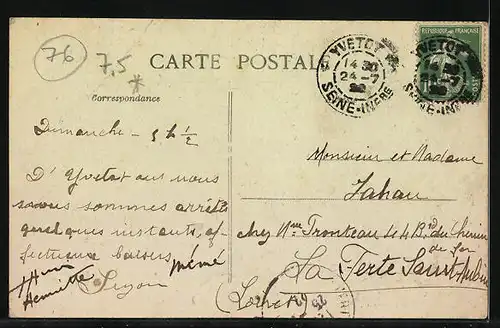 76
7,5
*
CARTE POSTALE
YVETOT
14 30
24 -7
22
SEINE-INFRE
REPUBLIQUE FRANÇAISE
YVETOT
SEINE-INFRE
Correspondance
Dimanche - 5 h ½
D'Yvetot ous nous
nous sommes arrêtés
quelques instants, af-
fectueux baisers
mémé
Henriette
Suzon
Monsieur et Madame
Jahau
chez Mme Tronteau 44 Bd du Chemin
de fer
La Ferte Saint-Aubin
(Loiret)